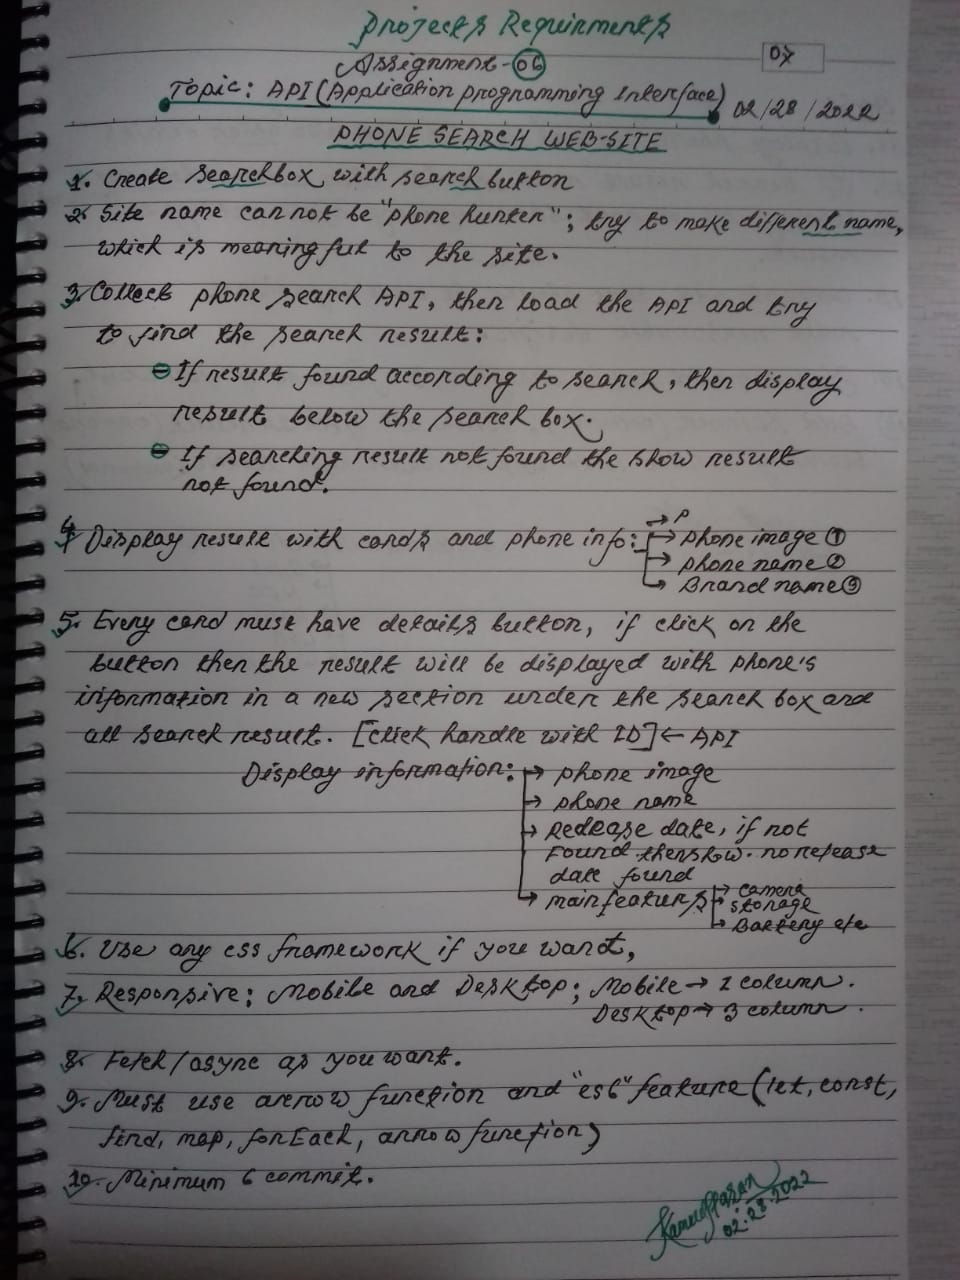 Projects Requirments
Assignment-06
07
Topic: API (Application programming Interface)
02/28/2022
PHONE SEARCH WEB-SITE
1. Create searchbox with search button
2. Site name cannot be "phone hunter"; try to make different name,
which is meaningful to the site.
3. Collect phone search API, then load the API and try
to find the search result:
If result found according to search, then display
result below the search box.
If searching result not found the show result
not found.
→ P
4. Display result with cards and phone info: → phone image ①
→ phone name ②
→ Brand name ③
5. Every card must have details button, if click on the
button then the result will be displayed with phone's
information in a new section under the search box and
all search result. [click handle with ID] ← API
Display information: → phone image
→ phone name
→ Release date, if not
found then show. no release
date found
→ main features → camera
→ storage
→ Battery etc
6. Use any css framework if you want,
7. Responsive; Mobile and Desktop; Mobile → 1 column.
Desktop → 3 column.
8. Fetch/async as you want.
9. Must use arrow function and "es6" feature (let, const,
find, map, forEach, arrow function)
10. Minimum 6 commit.
02.28.2022